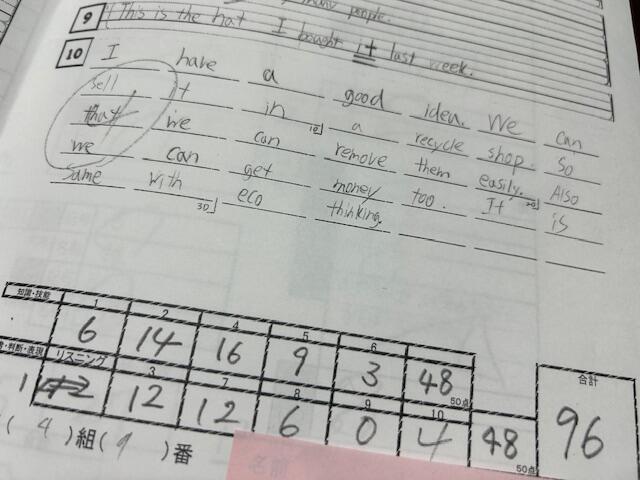 many people.
9 This is the hat I bought it last week.
10 I have a good idea. We can
sell t in a recycle shop. So
10
that we can remove them easily. Also
20
we can get money too. It is
same with eco thinking.
30
知識・技能 1 2 4 5 6
6 14 16 9 3 48
50点
判断・表現 リスニング 3 7 8 9 10
12 12 6 0 4 48
50点
合計
96
(4)組(9)番
名前